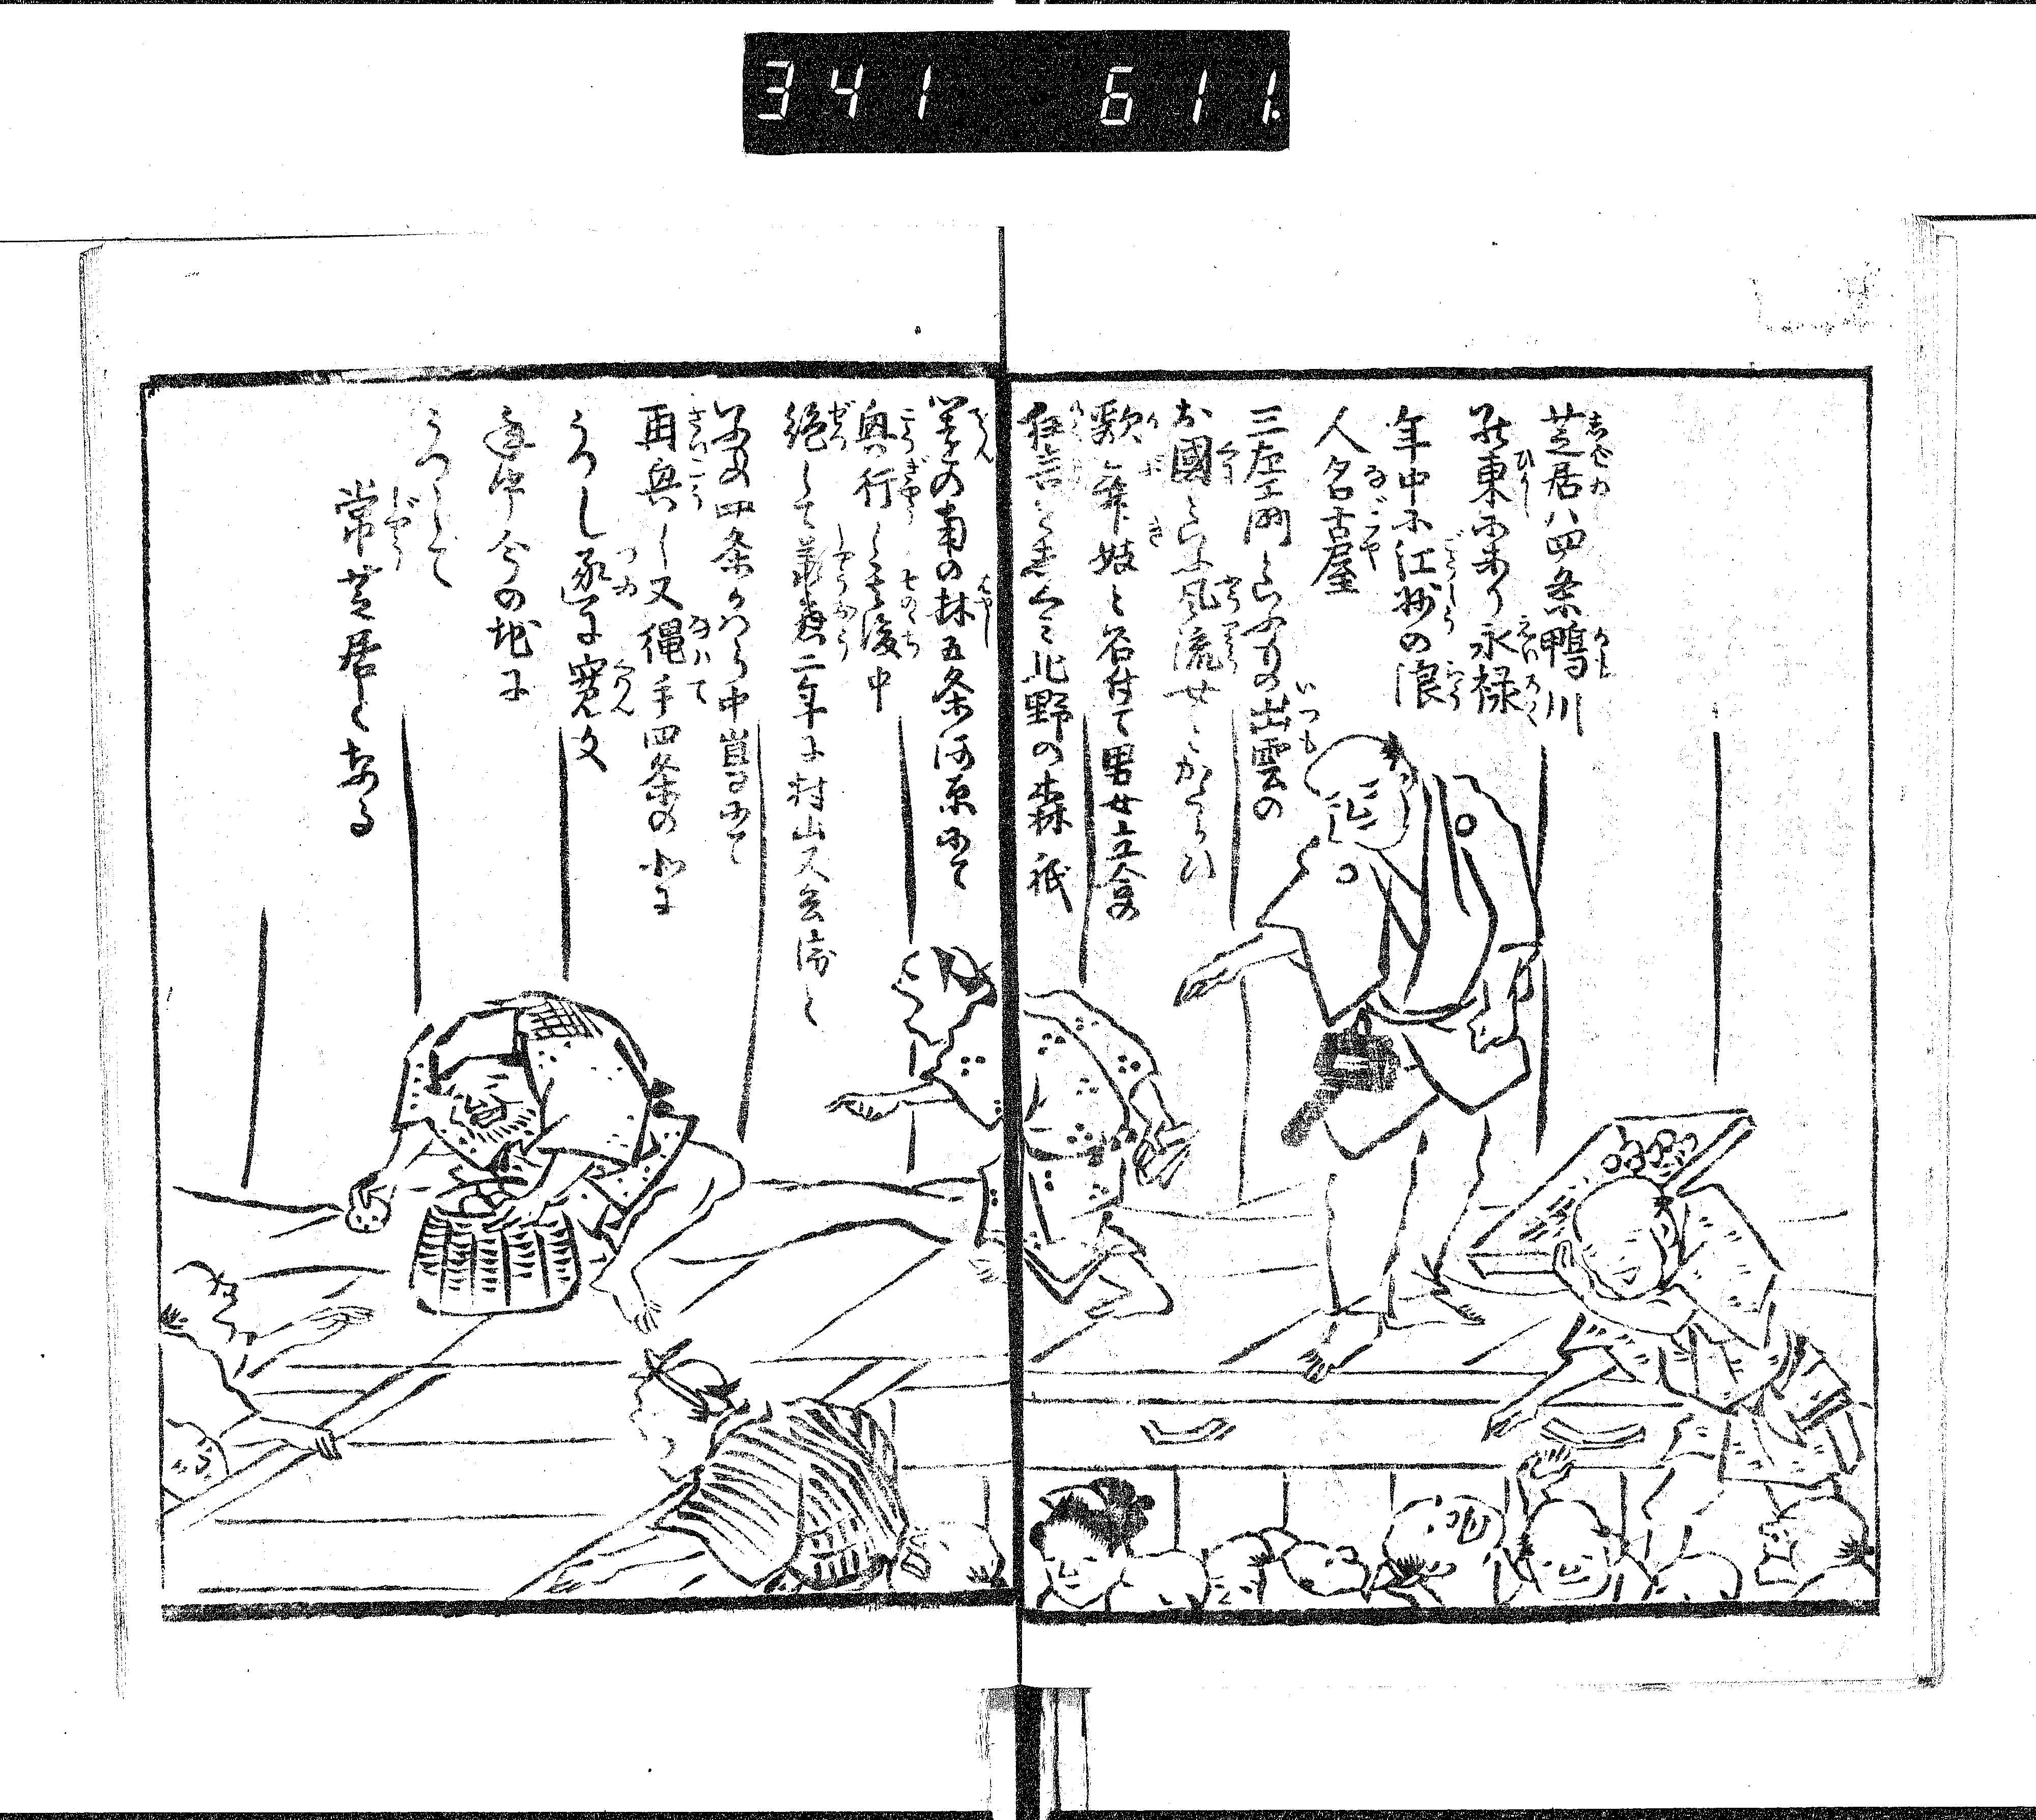 341 611.
芝居ハ四条鴨川
の東にあり永禄
年中に江州の浪
人名古屋
三左エ門といふもの出雲の
お國といふ風流女とかたらひ
歌舞妓と名付て男女立合の
狂言を
北野の森祇
園の南の林五条河原にて
興行し其後中
絶して承應二年に村山又兵衛と
いふもの四条かハら中嶋にて
再興し又縄手四条の北に
うつし遂に寛文
年中今の地に
うつして
常芝居となる